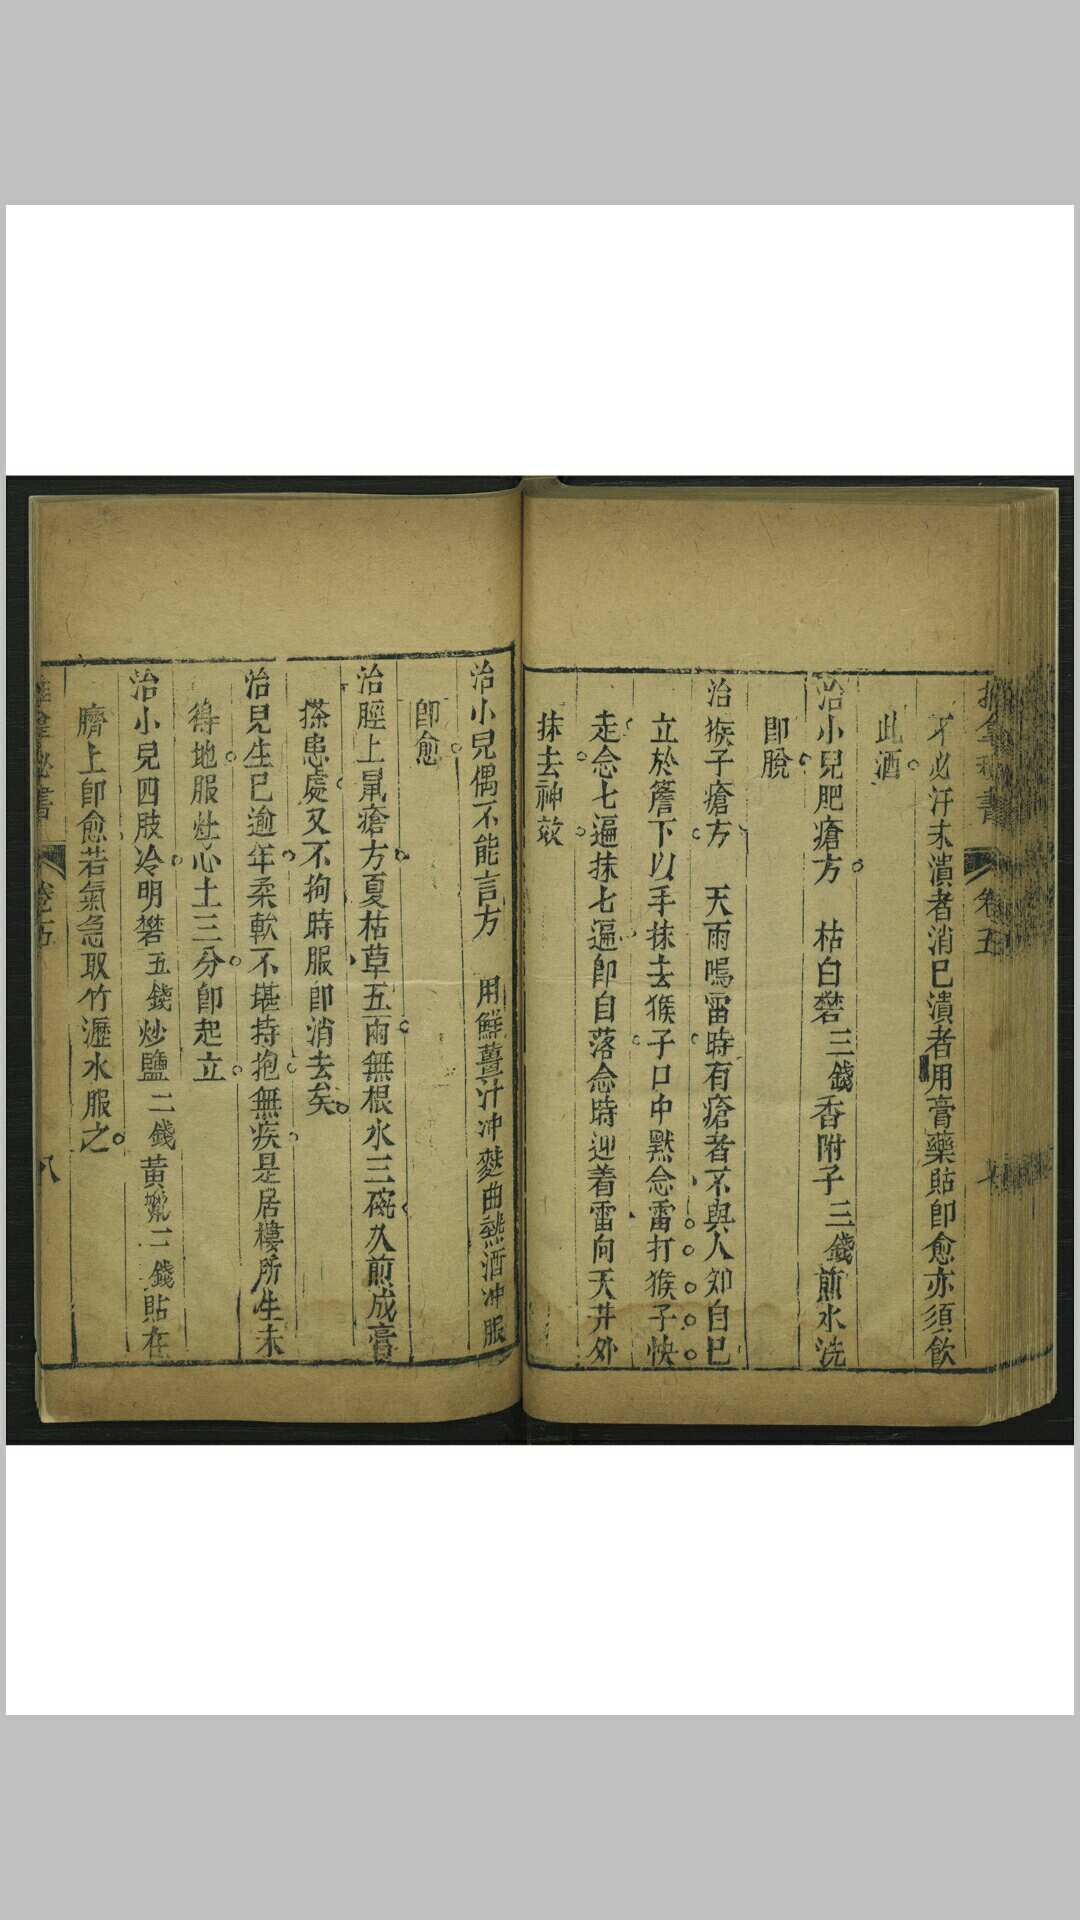 才必汗未潰者消巳潰者用膏藥貼卽愈亦須飲
此酒
治小兒肥瘡方　枯白礬三錢香附子三錢煎水洗
卽脫
治猴子瘡方　天雨鳴雷時有瘡者不與人知自巳
立於簷下以手抹去猴子口中默念雷打猴子快
走念七遍抹七遍卽自落念時迎着雷向天井外
抹去神效
卷五
治小兒偶不能言方　用鮮薑汁冲麩曲熱酒冲服
卽愈
治脛上鼠瘡方夏枯草五兩無根水三碗久煎成膏
搽患處又不拘時服卽消去矣
治兒生巳逾年柔軟不堪持抱無疾是居樓所生未
得地服灶心土三分卽起立
治小兒四肢冷明礬五錢炒鹽二錢黃蠟二錢貼在
臍上卽愈若氣急取竹瀝水服之
書
卷五
八